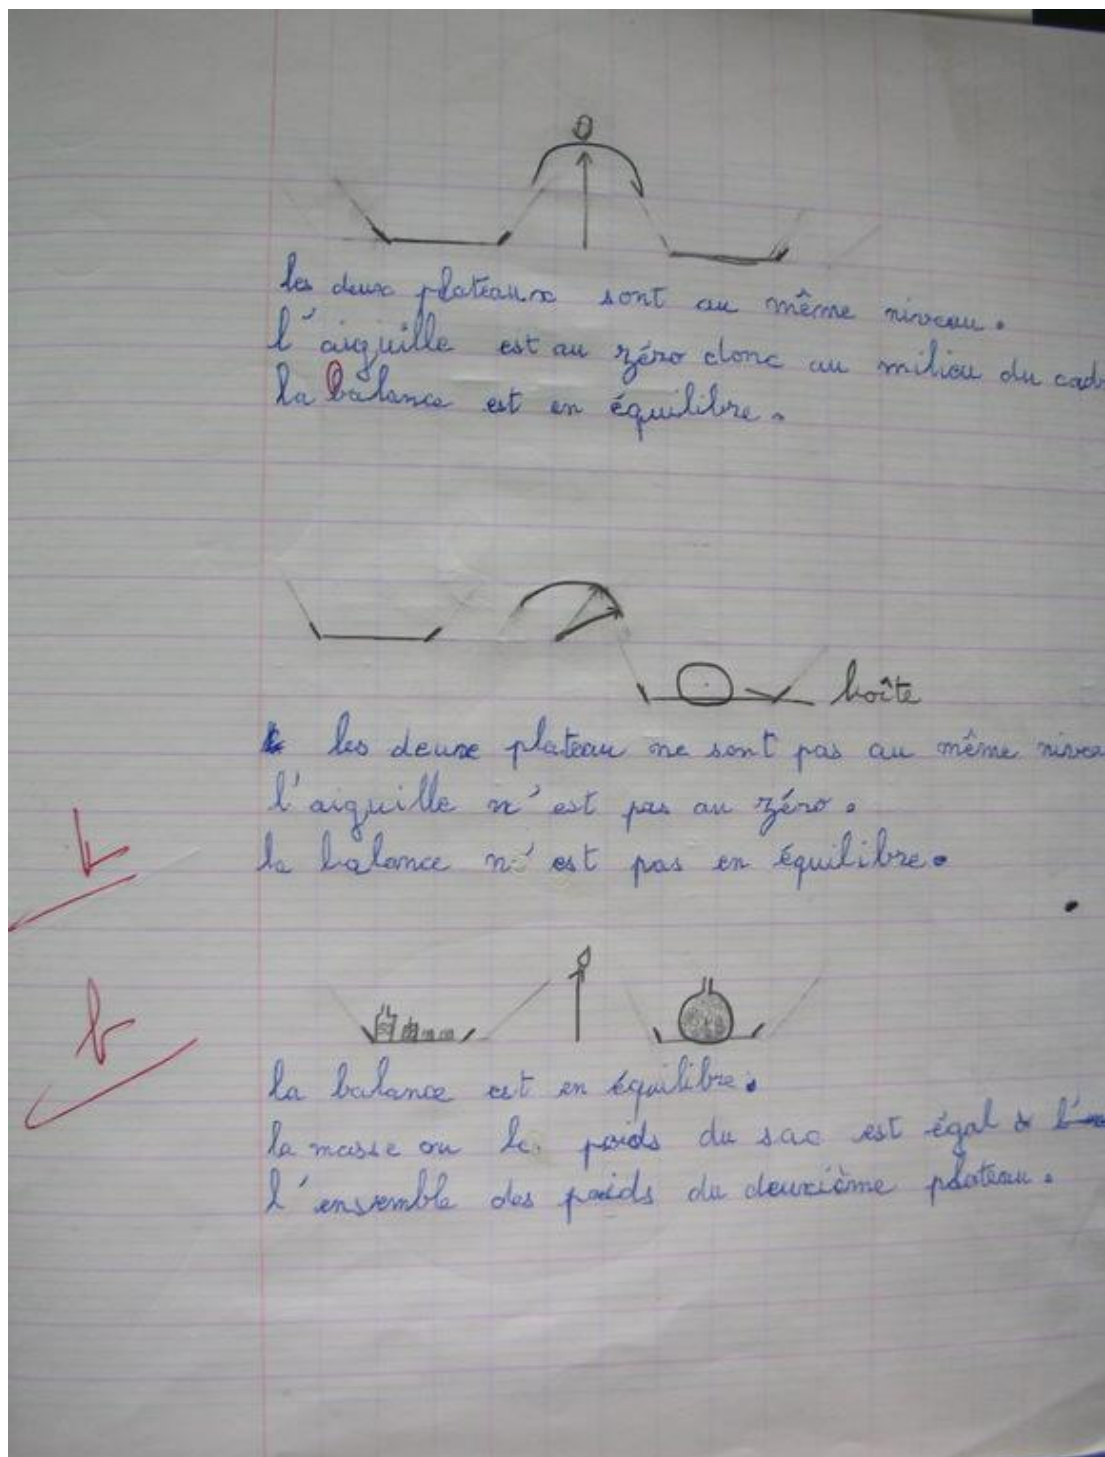 0
les deux plateaux sont au même niveau.
l'aiguille est au zéro donc au milieu du cad
la balance est en équilibre.
boîte
les deuxe plateau ne sont pas au même nivea
l'aiguille n'est pas au zéro.
la balance n'est pas en équilibre.
b
b
la balance est en équilibre.
la masse ou le poids du sac est égal à
l'ensemble des poids du deuxième plateau.